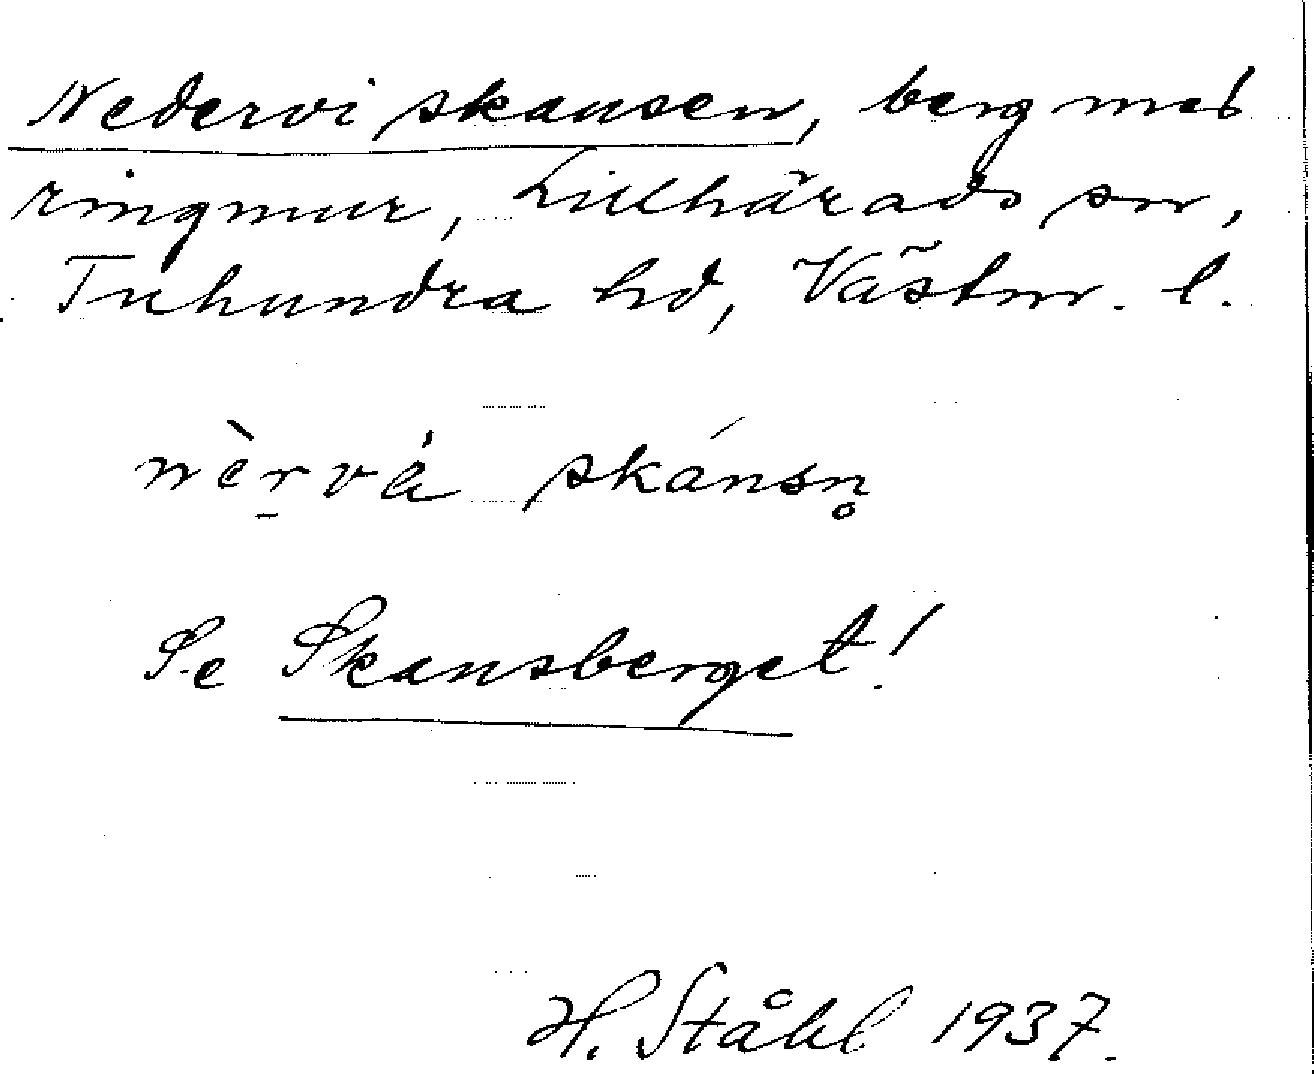 Nedervi skansen, berg med
ringmur, Lillhärads sn,
Tuhundra hd, Västm. l.
nèrvá skánsn̥
Se Skansberget!
H. Ståhl 1937.